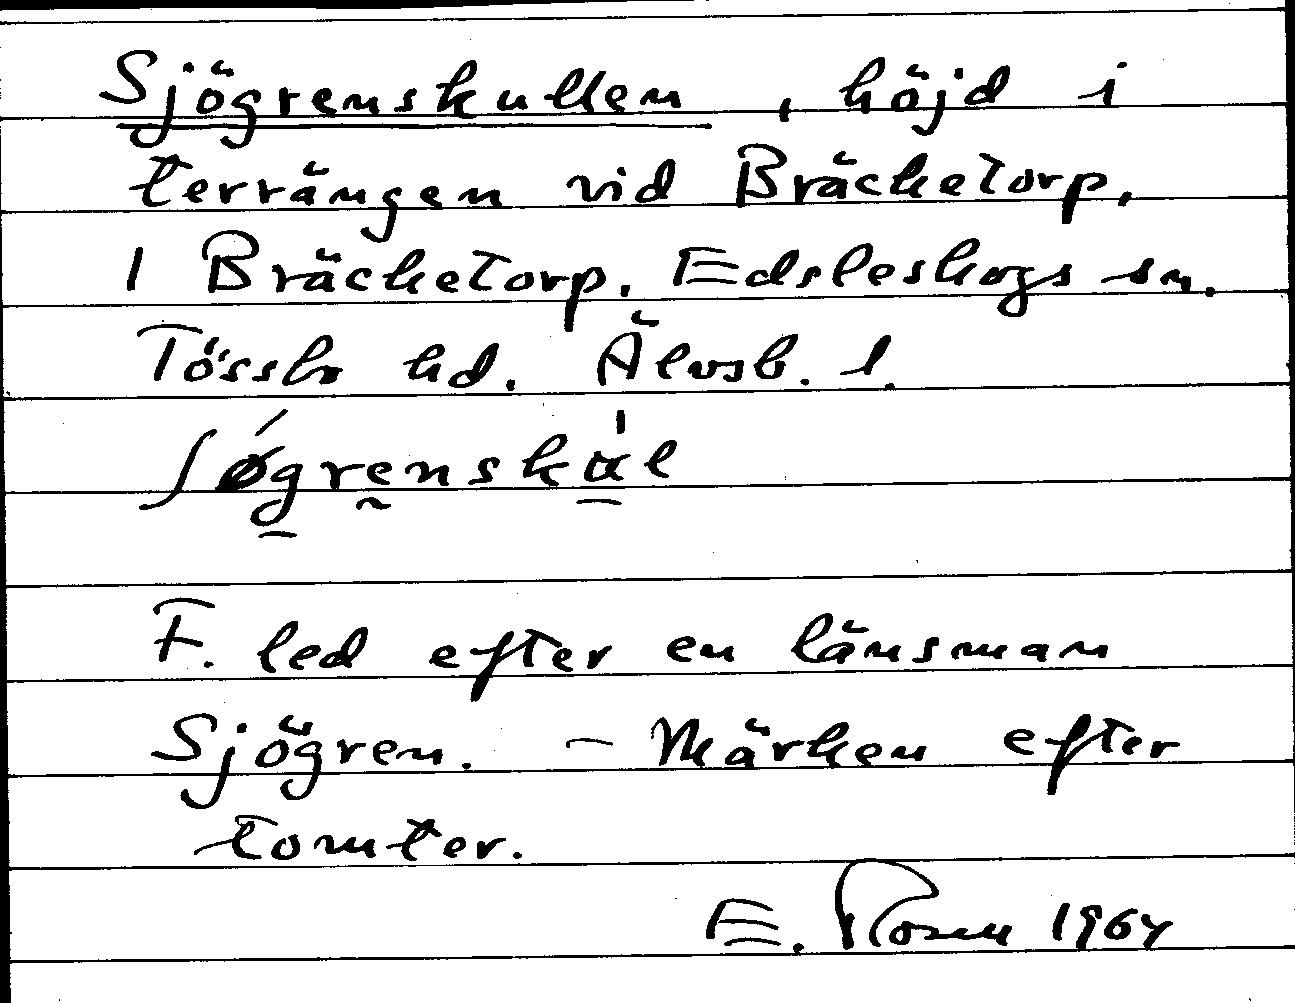 Sjögrenskullen, höjd i
terrängen vid Bräcketorp,
1 Bräcketorp, Edsleskogs sn.
Tössbo hd. Älvsb. l.
ʃǿgrenskál
F. led efter en länsman
Sjögren. – Märken efter
tomter.
E. Rosell 1964